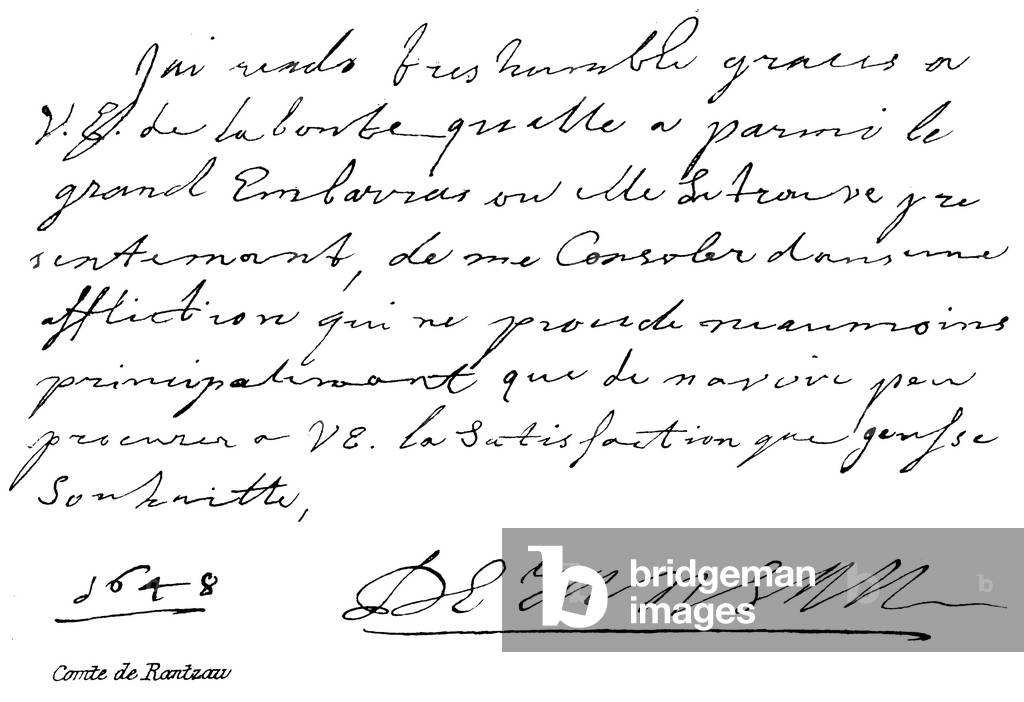 Jai rendu tres humble graces a
V. E. de la bonte qu'elle a parmi le
grand Embarras ou elle se trouve pre
sentemant, de me Consoler dans une
affliction qui ne proude neaumoins
principalemant que de navoir peu
procurer a VE. la Satisfaction que geusse
Souhaitte,
1648
DE
bridgeman
images
b
b
b
Comte de Rantzau